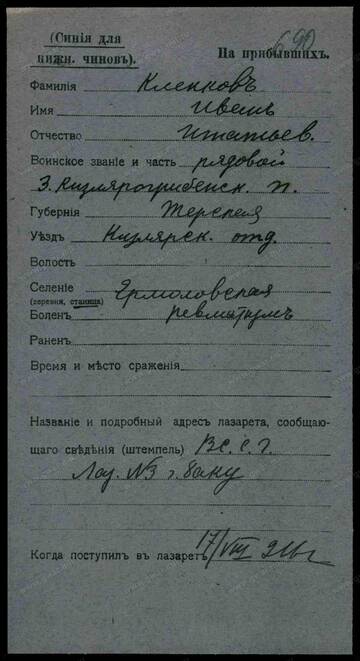 (Синія для нижн. чиновъ).
На прибывшихъ.
690
Фамилія Клепковъ
Имя Иванъ
Отчество Игнатьев.
Воинское званіе и часть рядовой
3. Кизлярогребенск. п.
Губернія Терская
Уѣздъ Кизлярск. отд.
Волость
Селеніе Ермоловская
(деревня, станица)
Боленъ ревматизмъ
Раненъ
Время и мѣсто сраженія
Названіе и подробный адресъ лазарета, сообщаю-
щаго свѣдѣнія (штемпель) В. С. Г.
Лаз. №3 г. Баку
Когда поступилъ въ лазаретъ 17/VIII 916 г